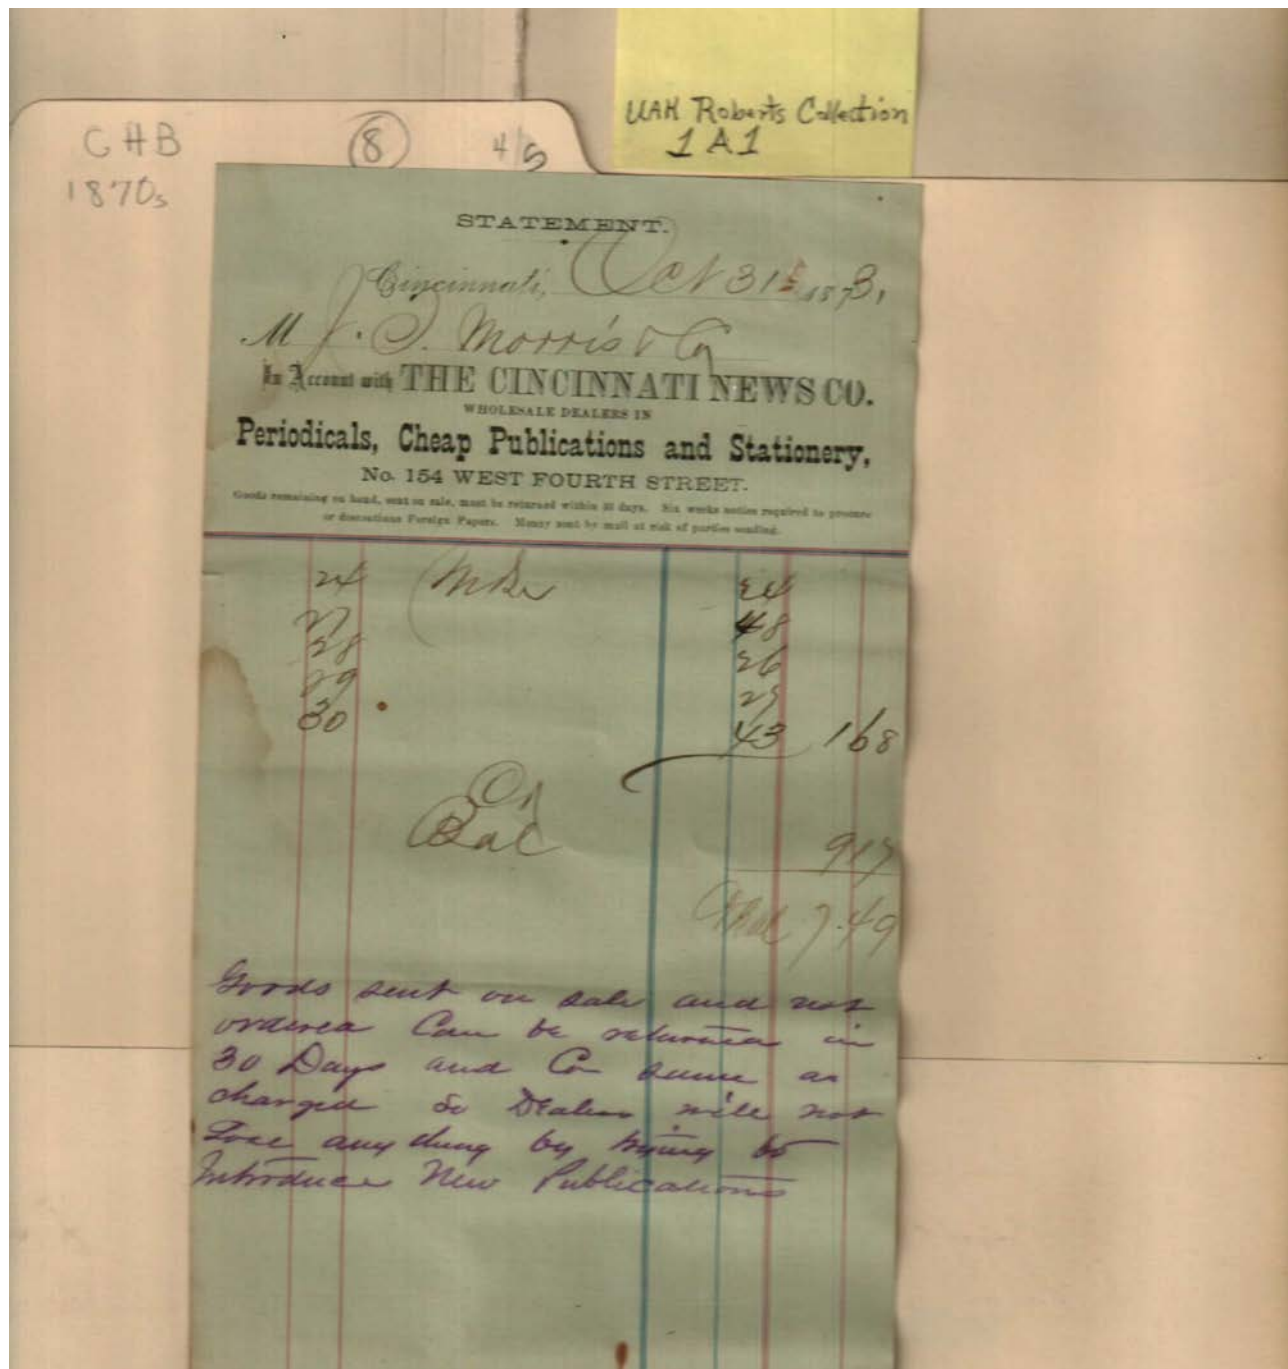 UAH Roberts Collection
1A1
CHB
8
4/5
1870s
STATEMENT.
Cincinnati, Oct 31st 1873,
M J. Morris & Co
In Account with THE CINCINNATI NEWS CO.
WHOLESALE DEALERS IN
Periodicals, Cheap Publications and Stationery,
No. 154 WEST FOURTH STREET.
Goods remaining on hand, sent on sale, must be returned within 21 days. Six weeks notice required to procure
or discontinue Foreign Papers. Money sent by mail at risk of parties sending.
24 24
27 48
28 26
29 27
30 43 168
Cr
Bal 917
7.49
Goods sent on sale and not
ordered Can be returned in
30 Days and Cr same as
charged So Dealers will not
Lose any thing by trying to
Introduce New Publications